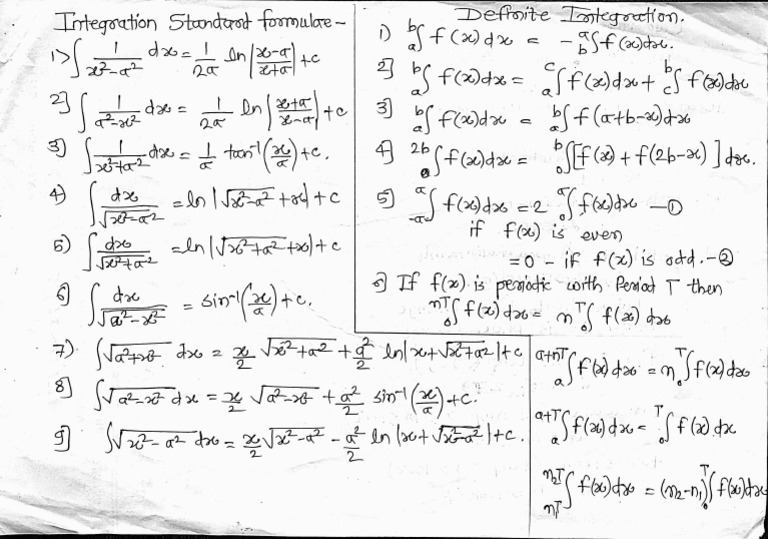 Integration Standard formulae -
1> ∫ 1/(x²-a²) dx = 1/2a ln |(x-a)/(x+a)| + c
2] ∫ 1/(a²-x²) dx = 1/2a ln |(x+a)/(x-a)| + c
3] ∫ 1/(x²+a²) dx = 1/a tan⁻¹(x/a) + c.
4) ∫ dx/√(x²-a²) = ln |√(x²-a²) + x| + c
5) ∫ dx/√(x²+a²) = ln |√(x²+a²) + x| + c
6] ∫ dx/√(a²-x²) = sin⁻¹(x/a) + c.
7). ∫√(a²+x²) dx = x/2 √(x²+a²) + a²/2 ln|x+√(x²+a²)| + c
8] ∫√(a²-x²) dx = x/2 √(a²-x²) + a²/2 sin⁻¹(x/a) + c.
9] ∫√(x²-a²) dx = x/2 √(x²-a²) - a²/2 ln |x+√(x²-a²)| + c.
Definite Integration.
1) ₐᵇ∫ f(x) dx = - ᵇₐ∫ f(x) dx.
2] ₐᵇ∫ f(x) dx = ₐᶜ∫ f(x) dx + c^b∫ f(x) dx
3] ₐᵇ∫ f(x) dx = ₐᵇ∫ f(a+b-x) dx
4] 0^2b∫ f(x) dx = 0^b∫ [f(x) + f(2b-x)] dx.
5] -a^a∫ f(x) dx = 2 0^a∫ f(x) dx — ①
if f(x) is even
= 0 - if f(x) is odd. - ②
If f(x) is periodic with Period T then
0^nT∫ f(x) dx = n 0^T∫ f(x) dx
a^a+nT∫ f(x) dx = n 0^T∫ f(x) dx
a^a+T∫ f(x) dx = 0^T∫ f(x) dx
n₁T^n₂T∫ f(x) dx = (n₂-n₁) 0^T∫ f(x) dx